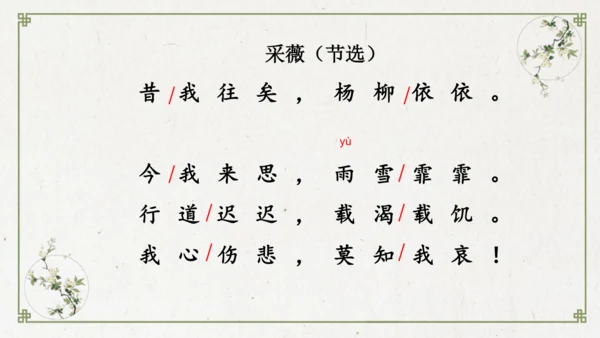 采薇（节选）
昔/我往矣，杨柳/依依。
yù
今/我来思，雨雪/霏霏。
行道/迟迟，载渴/载饥。
我心/伤悲，莫知/我哀！